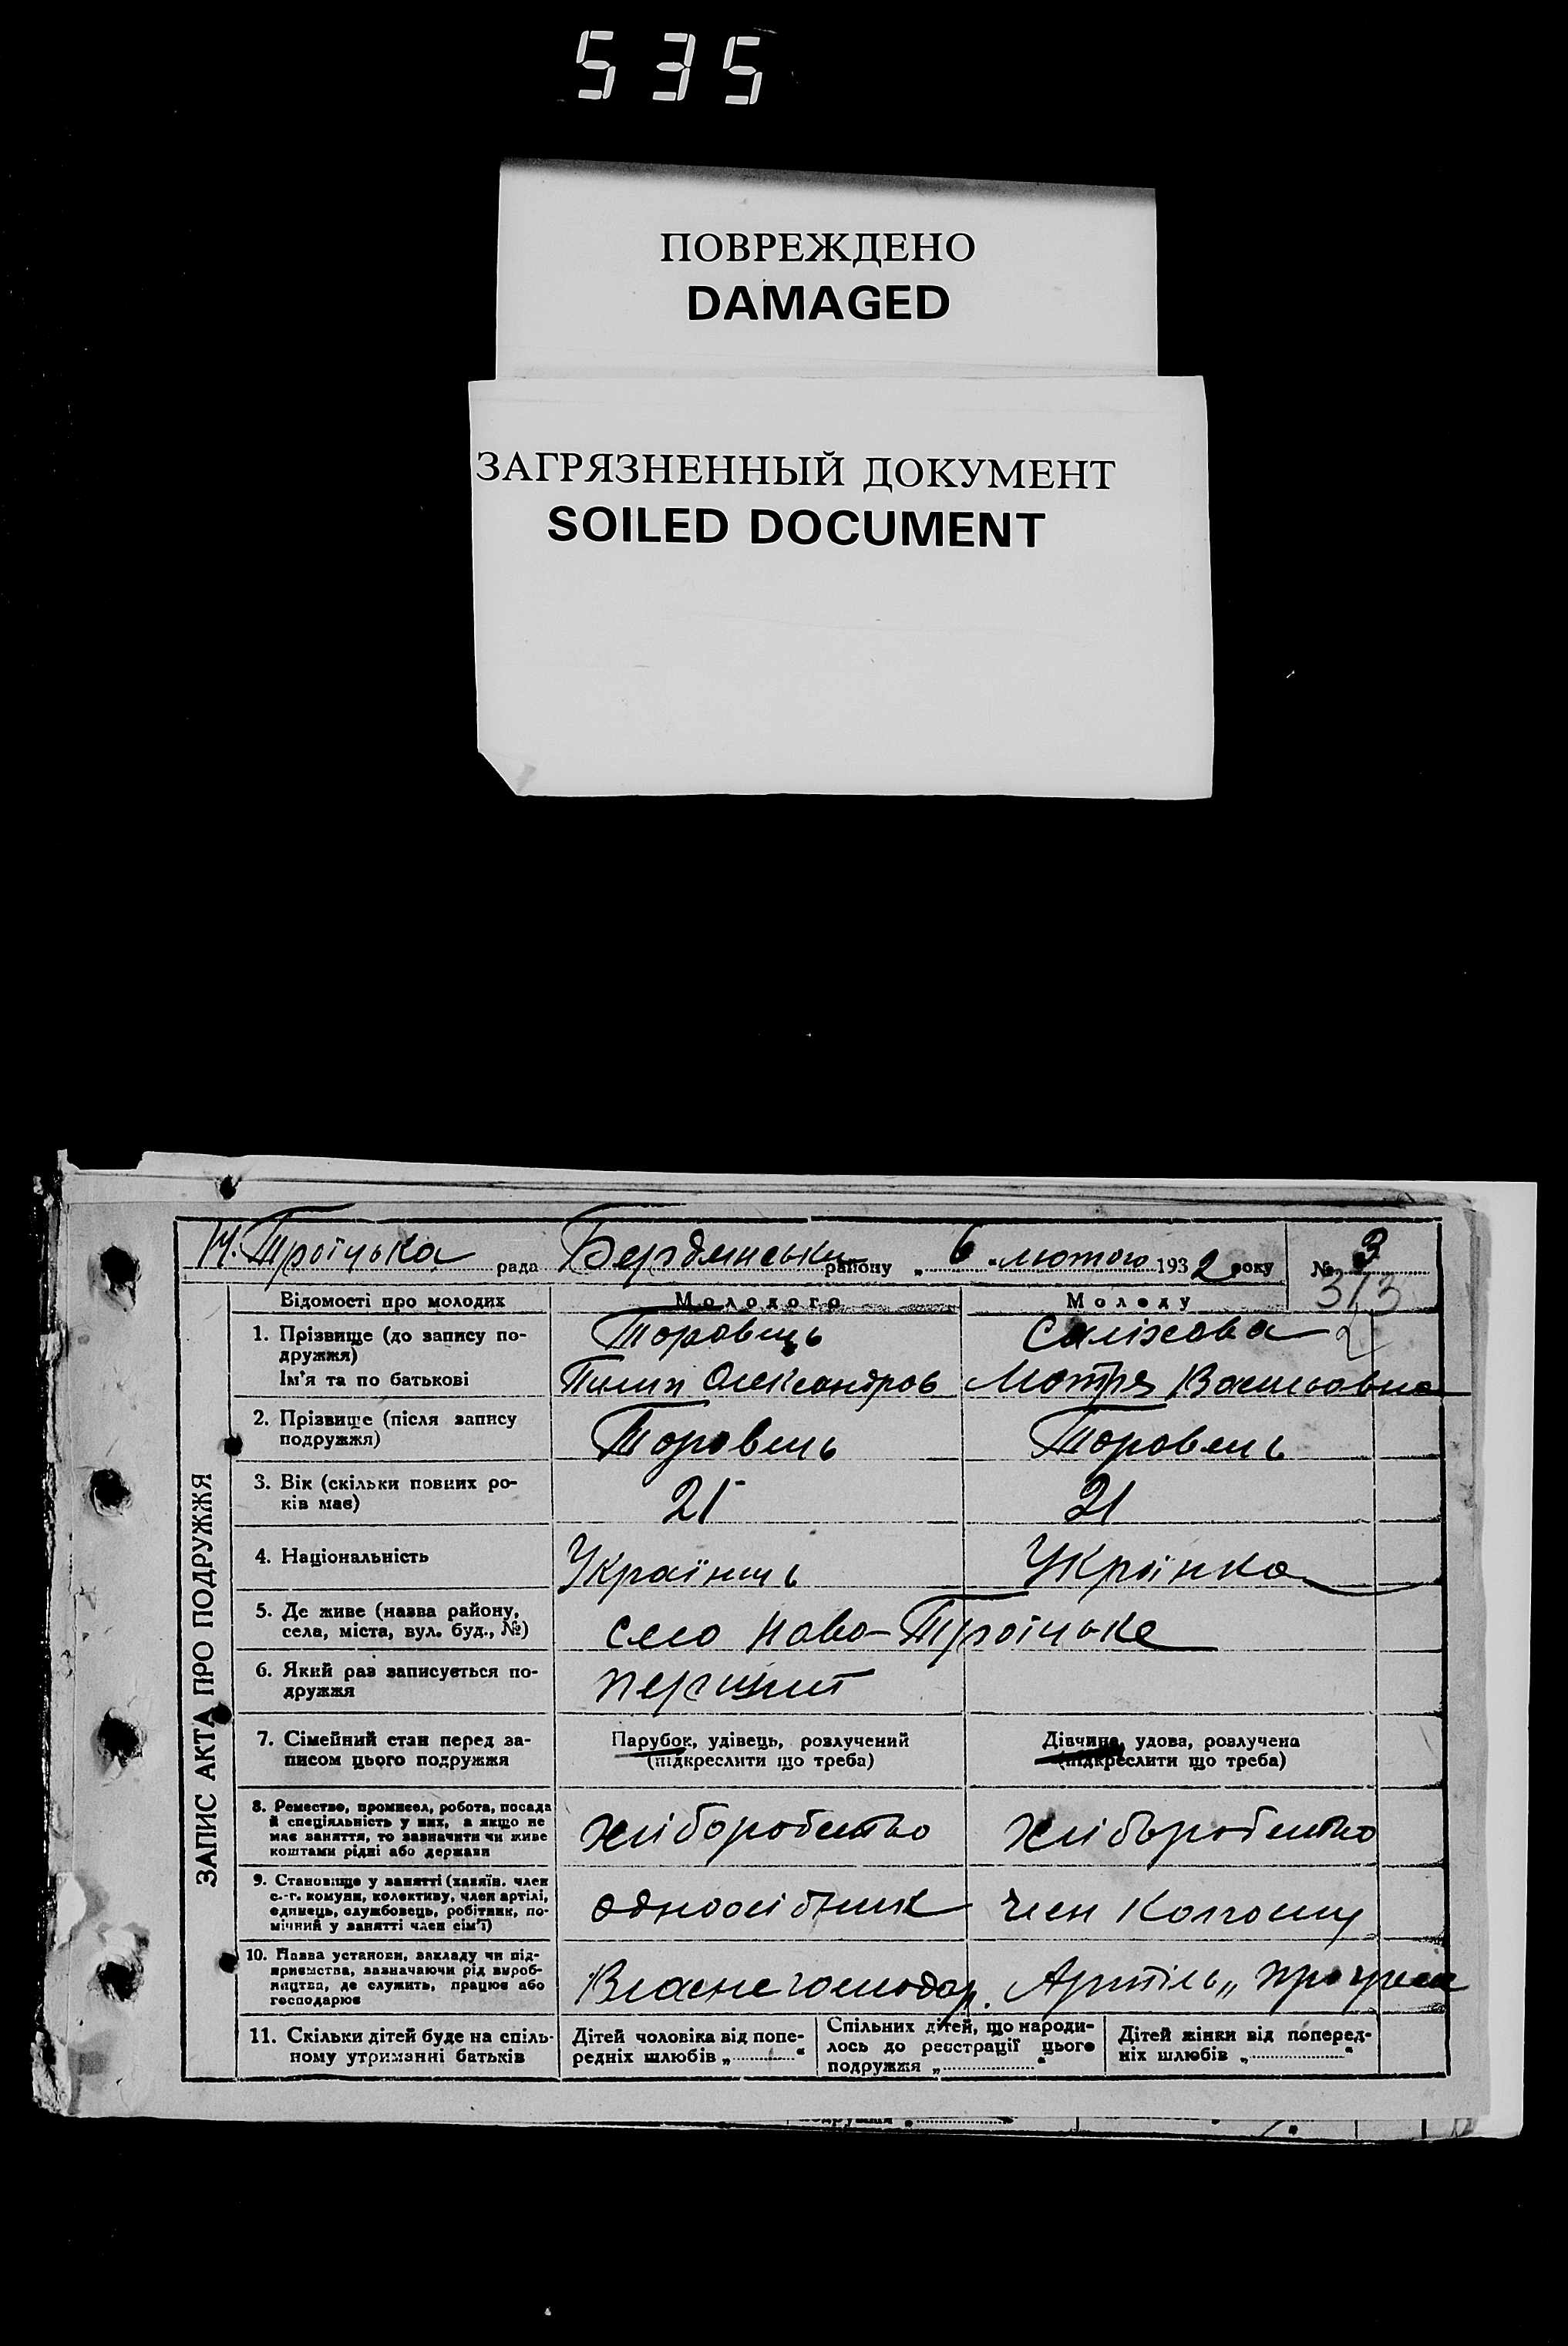 535
ПОВРЕЖДЕНО
DAMAGED
ЗАГРЯЗНЕННЫЙ ДОКУМЕНТ
SOILED DOCUMENT
ЗАПИС АКТА ПРО ПОДРУЖЖЯ
Н. Троїцька рада Бердянськи району „ 6 " лютого 1932 року № 3
313
Відомості про молодих Молодого Молоду
1. Прізвище (до запису подружжя) Торовець Саліхова
Ім'я та по батькові Пилип Олександров Мотря Васильовна
2. Прізвище (після запису подружжя) Торовець Торовець
3. Вік (скільки повних років має) 21 21
4. Національність Українець Укрїнка
5. Де живе (назва району, села, міста, вул. буд., №) село Ново-Троїцьке
6. Який раз записується подружжя
7. Сімейний стан перед записом цього подружжя Парубок, удівець, розлучений (підкреслити що треба) Дівчина, удова, розлучена (підкреслити що треба)
8. Ремество, промисел, робота, посада й спеціяльність у них, а якщо не має заняття, то зазначити чи живе коштами рідні або держави хліборобство хліборобство
9. Становище у занятті (хазяїн, член с.-г. комуни, колективу, член артілі, одинець, службовець, робітник, помічний у занятті член сім'ї) одноосібник член Колгоспу
10. Назва установи, закладу чи підприємства, зазначаючи рід виробництва, де служить, працює або господарює Власне господар. Артіль „Прогрес
11. Скільки дітей буде на спільному утриманні батьків Дітей чоловіка від попередніх шлюбів „ " Спільних дітей, що народилось до реєстрації цього подружжя „ " Дітей жінки від попередніх шлюбів „ "